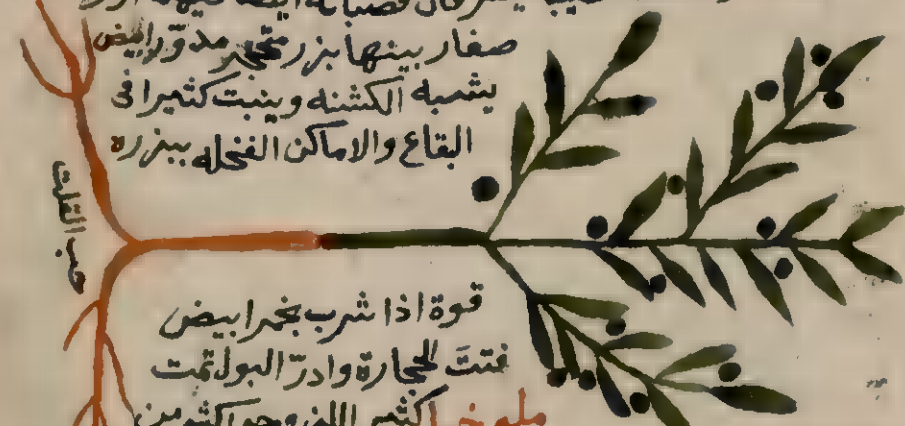 صغار بينها بزر متحجر مدوّر ابيض
يشبه الكشنه وينبت كثيرا فى
البقاع والاماكن الفحله ببزره
حب القلت
قوة اذا شرب بخمر ابيض
فتتَ الحجارة وادرّ البول تمت
اكثير اللبن وهو اكثر من